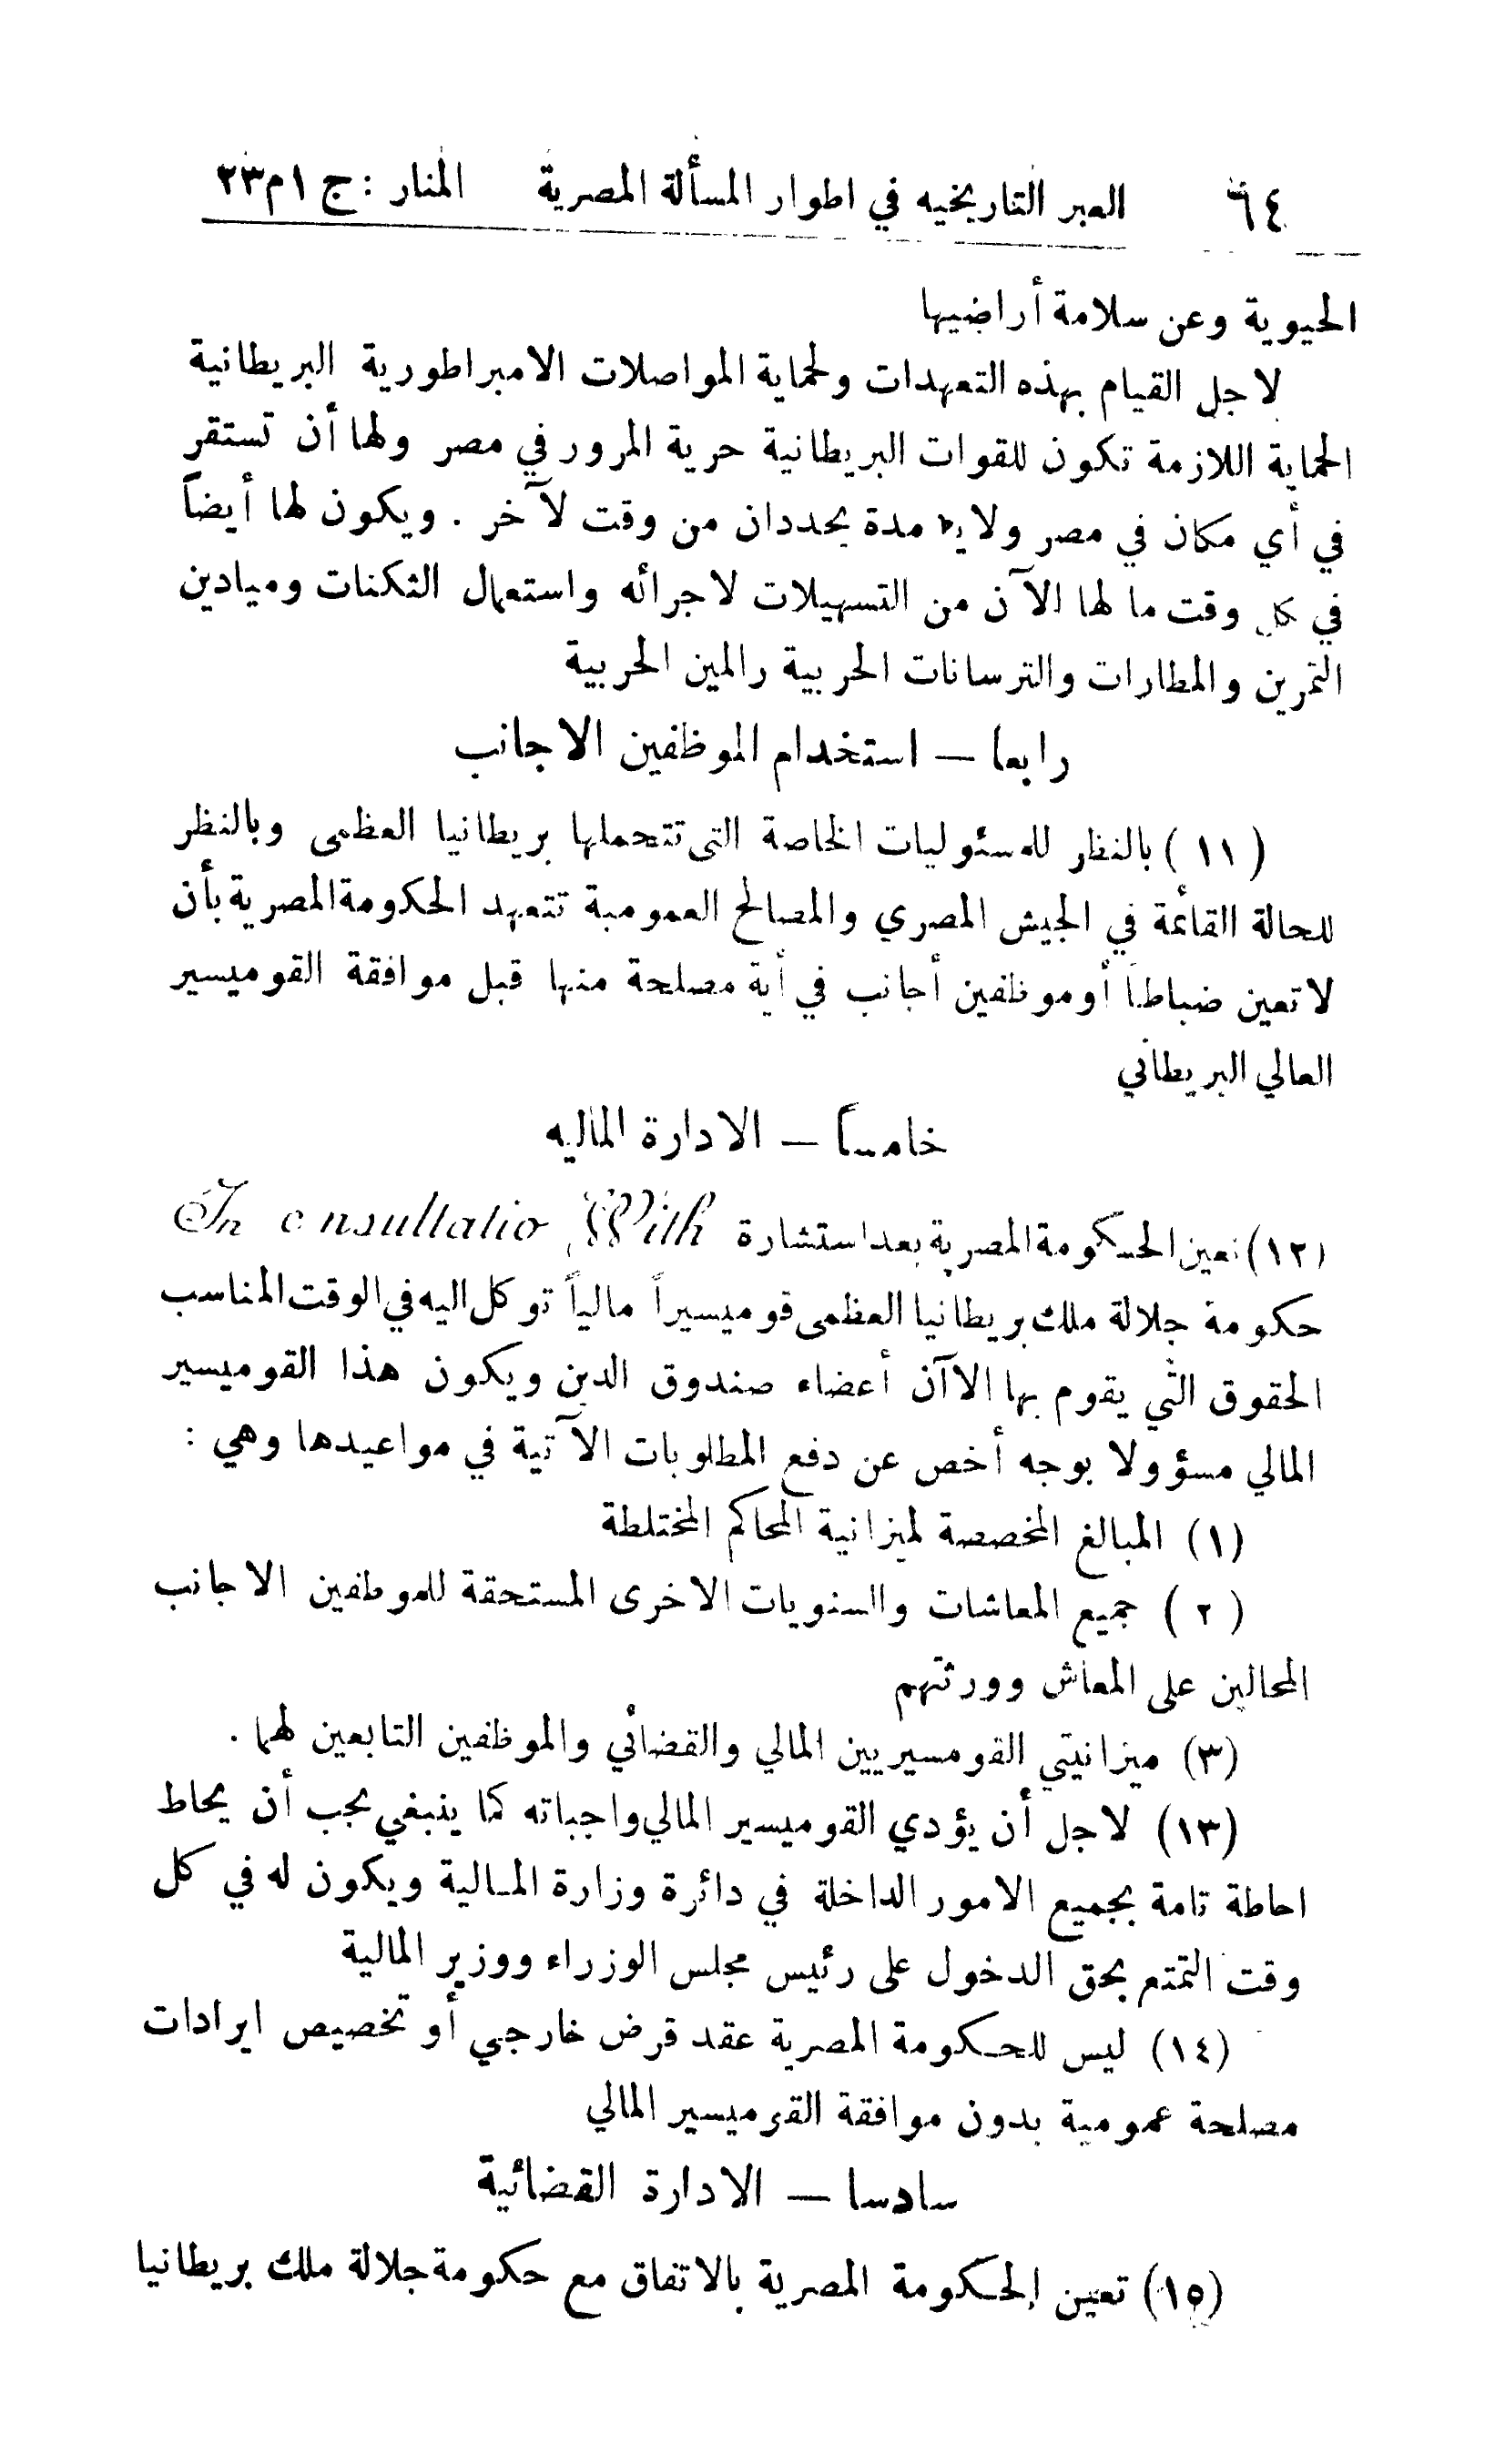 ٦٤ العبر التاريخيه في اطوار المسألة المصرية المنار : ج ١ م ٢٣
الحيوية وعن سلامة أراضيها
لاجل القيام بهذه التعهدات ولحماية المواصلات الامبراطورية البريطانية
الحماية اللازمة تكون للقوات البريطانية حرية المرور في مصر ولها أن تستقر
في أي مكان في مصر ولاية مدة يحددان من وقت لآخر . ويكون لها أيضاً
في كل وقت ما لها الآن من التسهيلات لاجرائه واستعمال الثكنات وميادين
التمرين والمطارات والترسانات الحربية والمين الحربية
رابعا — استخدام الموظفين الاجانب
(١١) بالنظر للمسئوليات الخاصة التي تتحملها بريطانيا العظمى وبالنظر
للحالة القائمة في الجيش المصري والمصالح العمومية تتعهد الحكومة المصرية بأن
لا تعين ضباطا أو موظفين أجانب في أية مصلحة منها قبل موافقة القوميسير
العالي البريطاني
خامساً — الادارة الماليه
(١٢) تعين الحكومة المصرية بعد استشارة In c nsultatio With
حكومة جلالة ملك بريطانيا العظمى قوميسيراً مالياً توكل اليه في الوقت المناسب
الحقوق التي يقوم بها الاآن أعضاء صندوق الدين ويكون هذا القوميسير
المالي مسؤولا بوجه أخص عن دفع المطلوبات الآتية في مواعيدها وهي :
(١) المبالغ المخصصة لميزانية المحاكم المختلطة
(٢) جميع المعاشات والسنويات الاخرى المستحقة للموظفين الاجانب
المحالين على المعاش وورثتهم
(٣) ميزانيتي القومسيريين المالي والقضائي والموظفين التابعين لهما .
(١٣) لاجل أن يؤدي القوميسير المالي واجباته كما ينبغي يجب أن يحاط
احاطة تامة بجميع الامور الداخلة في دائرة وزارة المالية ويكون له في كل
وقت التمتع بحق الدخول على رئيس مجلس الوزراء ووزير المالية
(١٤) ليس للحكومة المصرية عقد قرض خارجي أو تخصيص ايرادات
مصلحة عمومية بدون موافقة القوميسير المالي
سادسا — الادارة القضائية
(١٥) تعين الحكومة المصرية بالاتفاق مع حكومة جلالة ملك بريطانيا